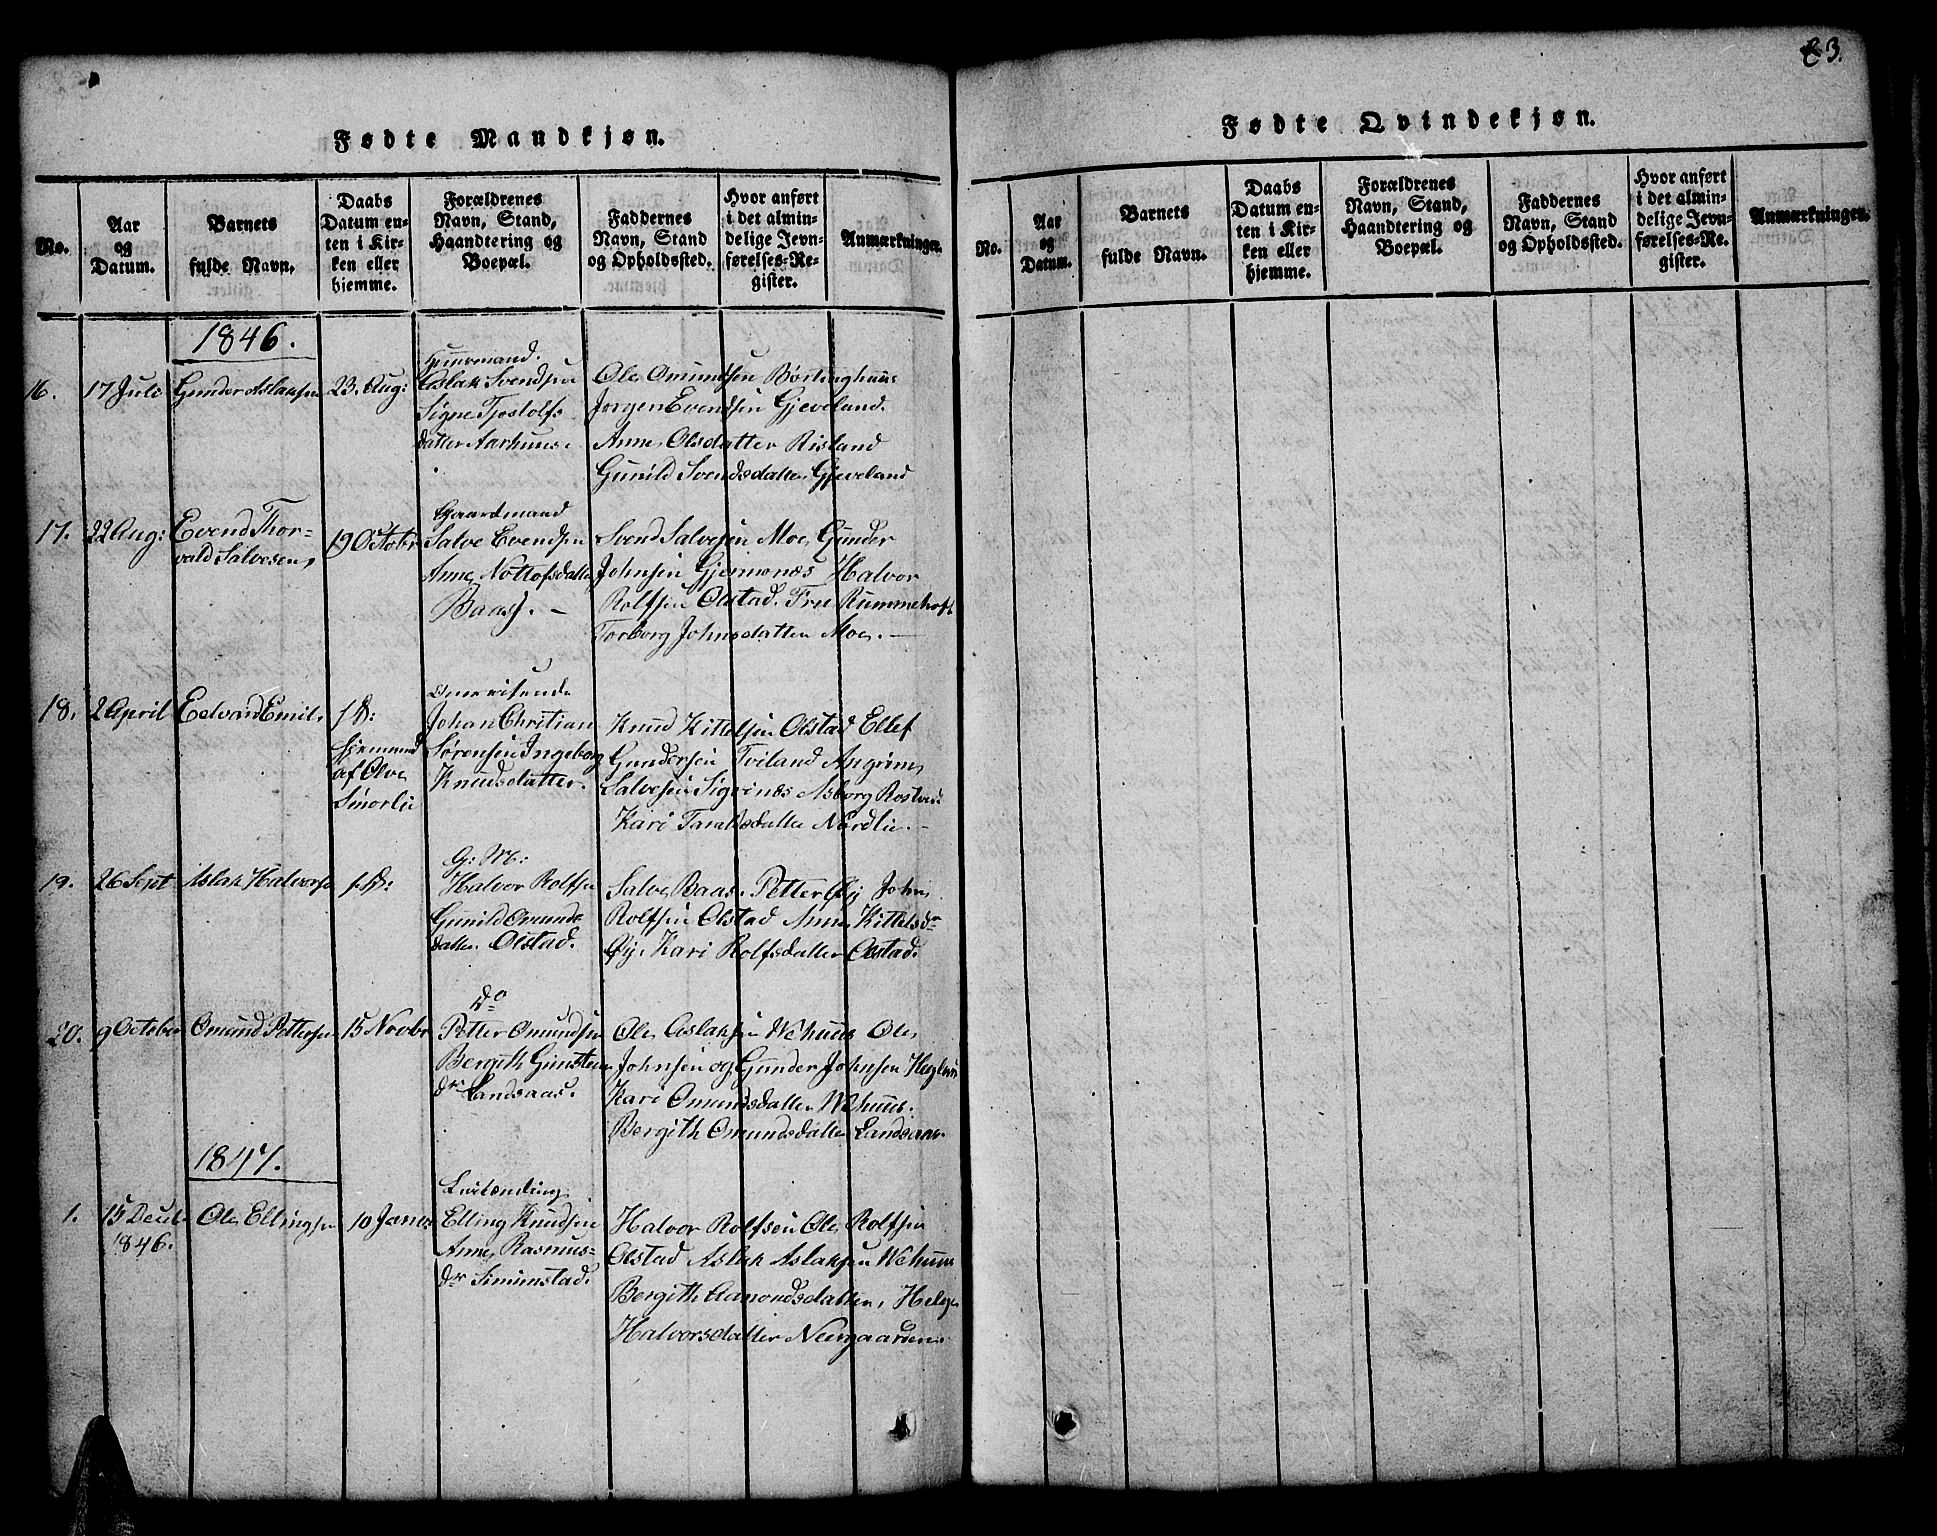 83.
Fødte Mandkjøn.
No.
Aar og Datum.
Barnets fulde Navn.
Daabs Datum enten i Kirken eller hjemme.
Forældrenes Navn, Stand, Haandtering og Boepæl.
Faddernes Navn, Stand og Opholdssted.
Hvor anført i det almindelige Jevnførelses-Register.
Anmærkninger.
1846.
16. 17 Juli Gunder Aslaksen 23. Aug:
Aslak Svendsen
Signe Tjostolfs
datter Aarhuus.
Ole Omundsen Børtinghuus
Jørgen Evendsen Gjeveland.
Anne Olsdatter Risland
Gunild Svendsdatter Gjeveland
17. 22 Aug: Evend Thor-
vald Salvesen,
19 Octobr
Gaardmand
Salve Evendsen
Anne Nottofsdatter
Baas. —
Svend Salvesen Moe, Gunder
Johnsen Gjermonæs Halvor
Rolfsen Olstad. Fru Rummehoft
Torborg Johnsdatter Moe. —
18. 2 April Edvard Emil.
1 D:
Hjemmed
af Olve
Smorlii
Johan Christian
Sørensen Ingeborg
Knudsdatter.
Knud Kittelsen Olstad Ellef
Gundersen Tviland Angrim
Salvesen Sigvinæs Asborg
Kari Taraldsdatter Nordlie. —
19. 26 Sept Aslak Halvorsen 1. D:
G: M:
Halvor Rolfsen
Gunild Omunds
datter Olstad.
Salve Baas. Petter Øy John
Rolfsen Olstad Anne Kittelsd
Øy. Kari Rolfsdatter Olstad.
20. 9 October Omund Pettersen 15 Novbr
Do
Petter Omundsen
Bergith Gunsteins
dr Landsaas.
Ole Aslaksen Wehuus Ole
Johnsen og Gunder Johnsen
Kari Omundsdatter Wehuus.
Bergith Omundsdatter Landsaas.
1847.
1. 15 Decbr
1846.
Ole Ellingsen 10 Janr
Elling Knudsen
Anne Rasmus-
dr Simonstad.
Halvor Rolfsen Ole Rolfsen
Olstad Aslak Aslaksen Wehuus
Bergith Aamondsdatter, Helge
Halvorsdatter Neergaarden
Fødte Qvindekjøn.
No.
Aar og Datum.
Barnets fulde Navn.
Daabs Datum enten i Kirken eller hjemme.
Forældrenes Navn, Stand, Haandtering og Boepæl.
Faddernes Navn, Stand og Opholdssted.
Hvor anført i det almindelige Jevnførelses-Register.
Anmærkninger.